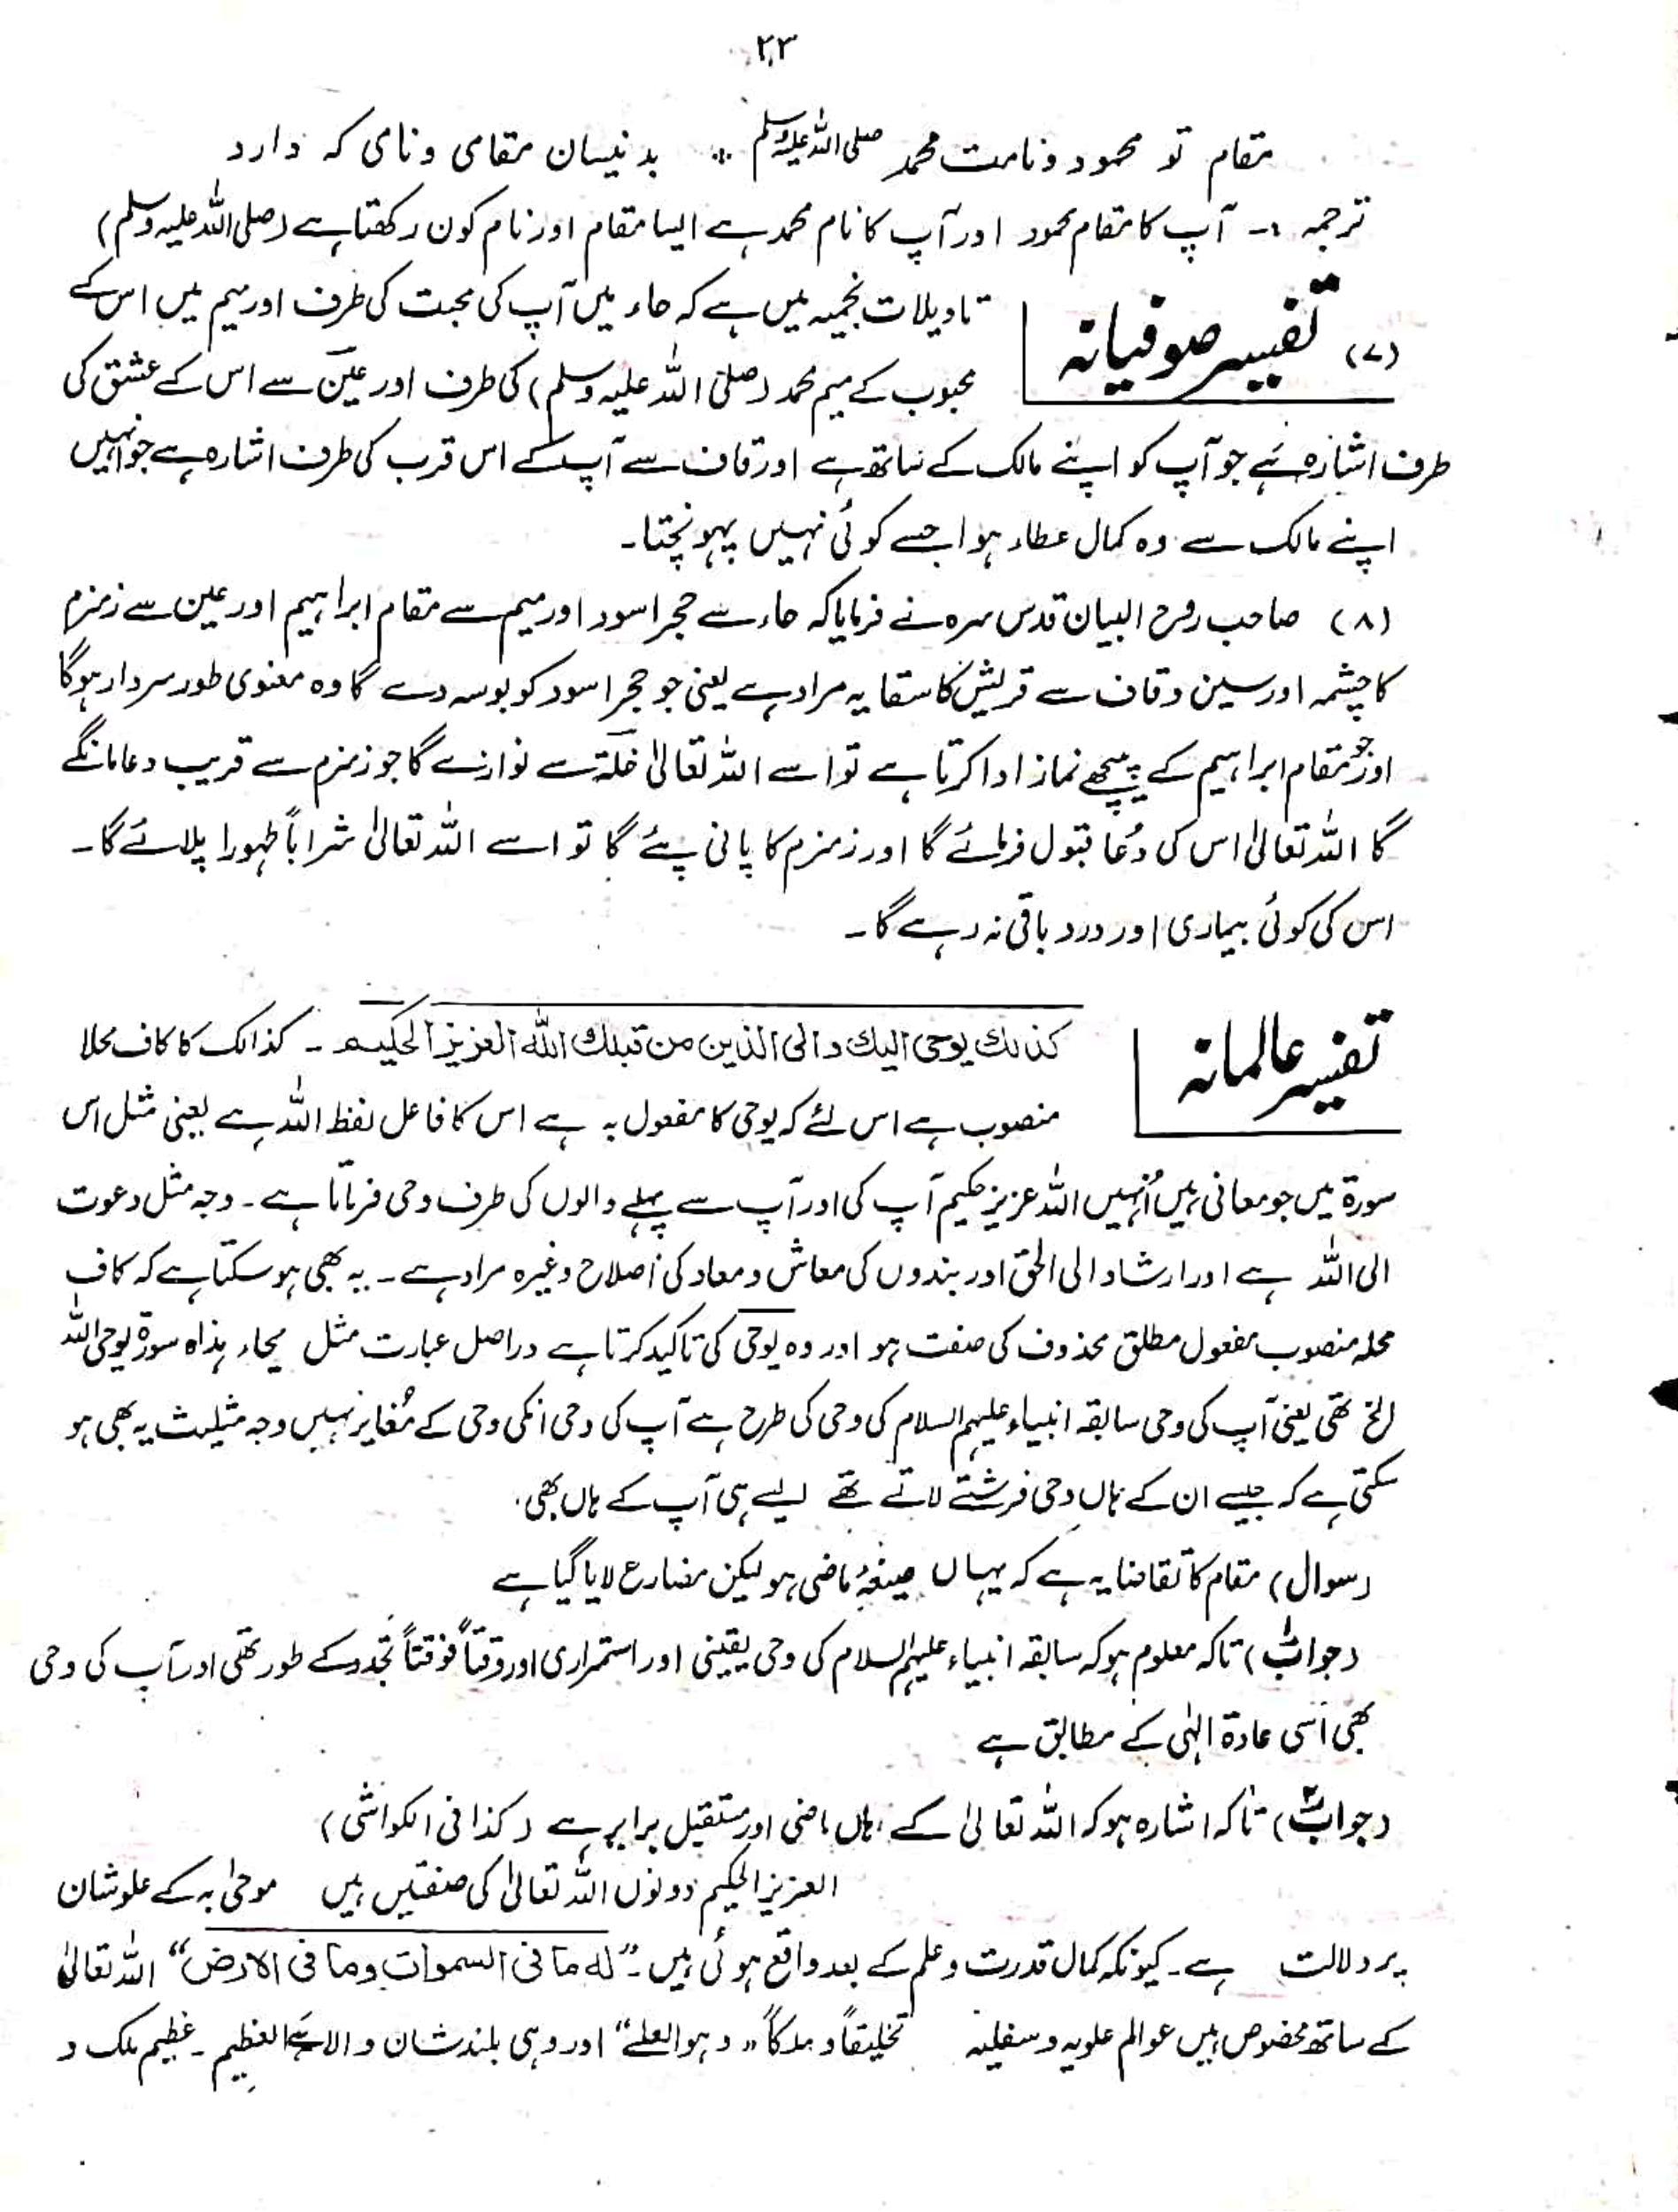 ۲۳
مقام تو محمود و نامت محمد صلی اللہ علیہ وسلم ٭ بدنیسان مقامی و نامی کہ دارد
ترجمہ :۔ آپ کا مقام محمود اور آپ کا نام محمد ہے ایسا مقام اور نام کون رکھتا ہے (صلی اللہ علیہ وسلم)
(۷) تفسیر صوفیانہ
تاویلات نجمیہ میں ہے کہ حاء میں آپ کی محبت کی طرف اور میم میں اس کے
محبوب کے میم محمد (صلی اللہ علیہ وسلم) کی طرف اور عین سے اس کے عشق کی
طرف اشارہ ہے جو آپ کو اپنے مالک کے ساتھ ہے اور قاف سے آپ کے اس قرب کی طرف اشارہ ہے جو انہیں
اپنے مالک سے وہ کمال عطاء ہوا جسے کوئی نہیں پہونچتا۔
(۸) صاحب روح البیان قدس سرہ نے فرمایا کہ حاء سے حجر اسود اور میم سے مقام ابراہیم اور عین سے زمزم
کا چشمہ اور سین و قاف سے قریش کا سقایہ مراد ہے یعنی جو حجر اسود کو بوسہ دے گا وہ معنوی طور سردار ہوگا
اور جو مقام ابراہیم کے پیچھے نماز ادا کرتا ہے تو اسے اللہ تعالیٰ خلۃ سے نوازے گا جو زمزم سے قریب دعا مانگے
گا اللہ تعالیٰ اس کی دُعا قبول فرمائے گا اور زمزم کا پانی پئے گا تو اسے اللہ تعالیٰ شراباً طہورا پلائے گا۔
اس کی کوئی بیماری اور درد باقی نہ رہے گا۔
تفسیر عالمانہ
کذلك یوحی الیك والی الذین من قبلك اللہ العزیز الحکیم ۔ کذالک کا کاف محلا
منصوب ہے اس لئے کہ یوحی کا مفعول بہ ہے اس کا فاعل لفظ اللہ ہے یعنی مثل اس
سورۃ میں جو معانی ہیں اُنہیں اللہ عزیز حکیم آپ کی اور آپ سے پہلے والوں کی طرف وحی فرماتا ہے ۔ وجہ مثل دعوت
الی اللہ ہے اور ارشاد الی الحق اور بندوں کی معاش و معاد کی اصلاح وغیرہ مراد ہے ۔ یہ بھی ہو سکتا ہے کہ کاف
محلہ منصوب مفعول مطلق محذوف کی صفت ہو اور وہ یوحی کی تاکید کرتا ہے دراصل عبارت مثل ہذاہ سورۃ یوحی اللہ
الخ تھی یعنی آپ کی وحی سابقہ انبیاء علیہم السلام کی وحی کی طرح ہے آپ کی وحی انکی وحی کے مُغایر نہیں وجہ مثلیث یہ بھی ہو
سکتی ہے کہ جیسے ان کے ہاں وحی فرشتے لاتے تھے ایسے ہی آپ کے ہاں بھی.
(سوال) مقام کا تقاضا یہ ہے کہ یہاں صیغۂ ماضی ہو لیکن مضارع لایا گیا ہے
(جواب۱) تاکہ معلوم ہو کہ سابقہ انبیاء علیہم السلام کی وحی یقینی اور استمراری اور وقتاً فوقتاً تجدد کے طور تھی اور آپ کی وحی
بھی اسی عادۃ الٰہی کے مطابق ہے
(جواب۲) تاکہ اشارہ ہو کہ اللہ تعالیٰ کے ہاں ماضی اور مستقبل برابر ہے (کذا فی الکواشی)
العزیز الحکیم دونوں اللہ تعالیٰ کی صفتیں ہیں موحیٰ بہ کے علو شان
پر دلالت ہے ۔ کیونکہ کمال قدرت و علم کے بعد واقع ہوئی ہیں ۔ "لہ ما فی السموات وما فی الارض" اللہ تعالیٰ
کے ساتھ مخصوص ہیں عوالم علویہ و سفلیہ تخلیقاً و ملکاً "وہو العلے" اور وہی بلند شان والا ہے العظیم ۔ عظیم ملک و